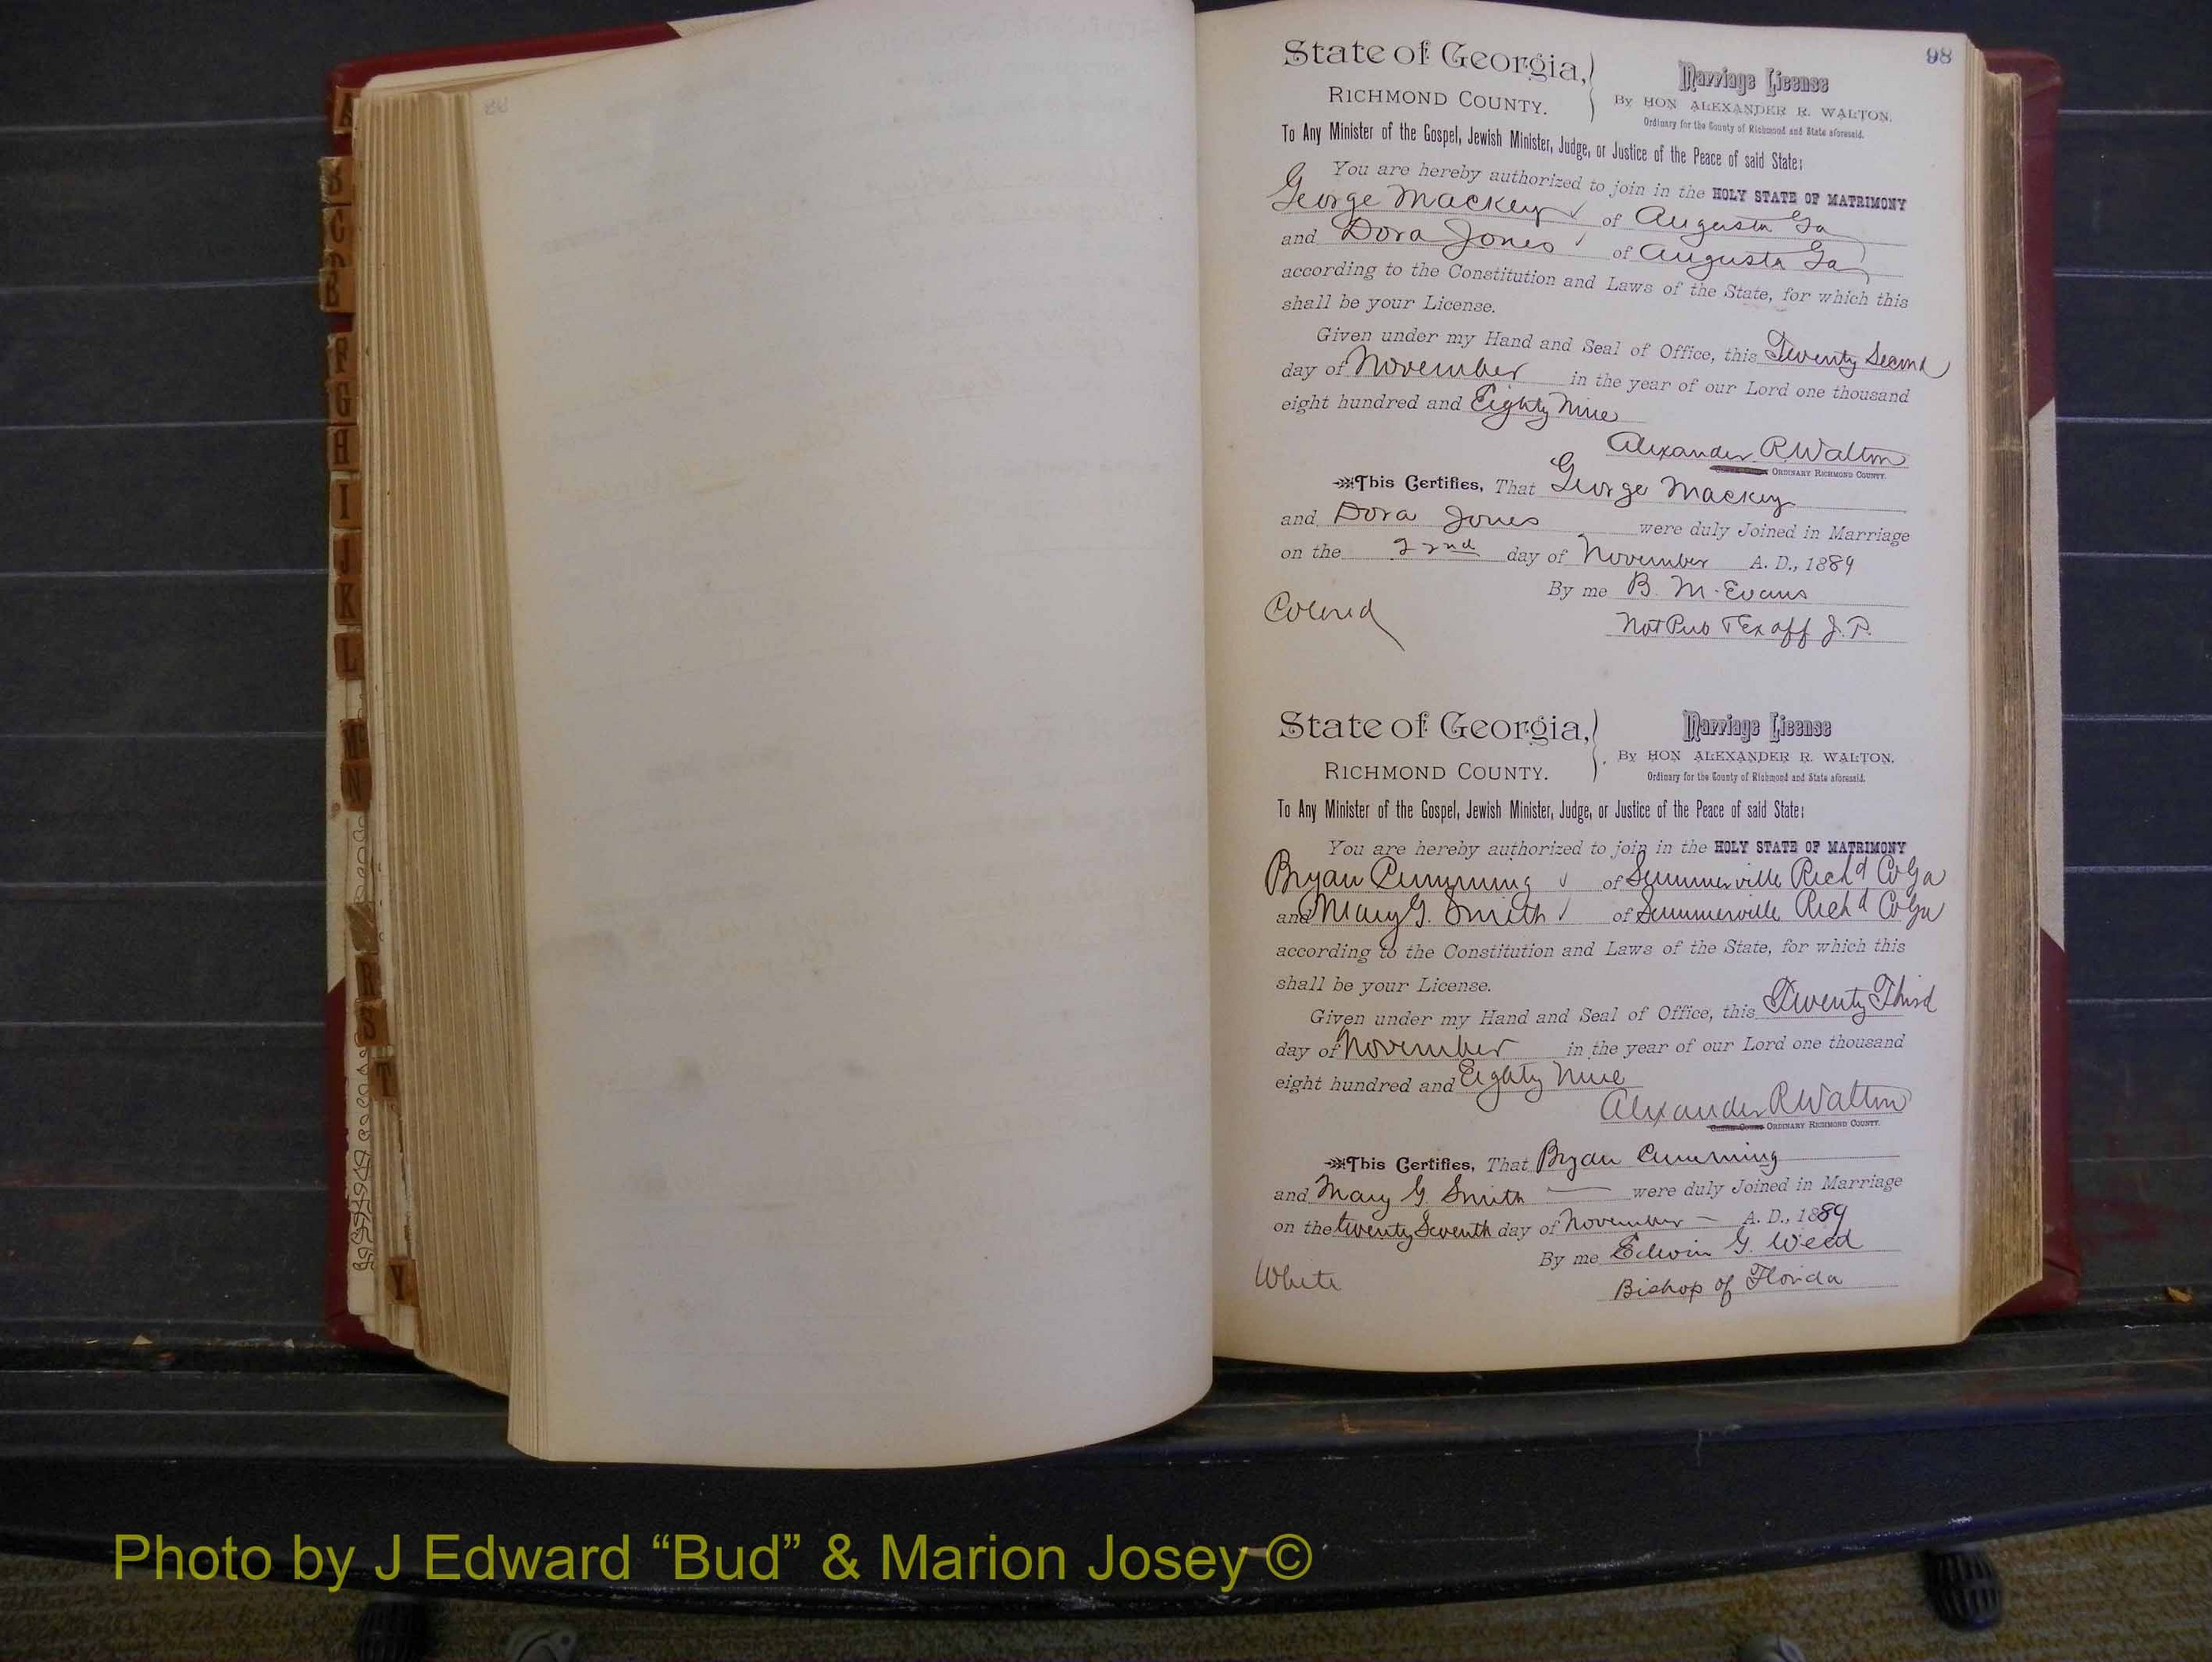 98
State of Georgia,
RICHMOND COUNTY.
Marriage License
By HON ALEXANDER R. WALTON.
Ordinary for the County of Richmond and State aforesaid.
To Any Minister of the Gospel, Jewish Minister, Judge, or Justice of the Peace of said State:
You are hereby authorized to join in the HOLY STATE OF MATRIMONY
George Mackey ✓ of Augusta Ga
and Dora Jones ✓ of Augusta Ga
according to the Constitution and Laws of the State, for which this
shall be your License.
Given under my Hand and Seal of Office, this Twenty Second
day of November in the year of our Lord one thousand
eight hundred and Eighty Nine
Alexander R Walton
ORDINARY RICHMOND COUNTY.
This Certifies, That George Mackey
and Dora Jones were duly Joined in Marriage
on the 22nd day of November A. D., 1889
By me B. M. Evans
Colored
Not Pub & Ex off J. P.
State of Georgia,
RICHMOND COUNTY.
Marriage License
By HON ALEXANDER R. WALTON.
Ordinary for the County of Richmond and State aforesaid.
To Any Minister of the Gospel, Jewish Minister, Judge, or Justice of the Peace of said State:
You are hereby authorized to join in the HOLY STATE OF MATRIMONY
Bryan Cumming ✓ of Summerville Richd Co Ga
and Mary G. Smith ✓ of Summerville Richd Co Ga
according to the Constitution and Laws of the State, for which this
shall be your License.
Given under my Hand and Seal of Office, this Twenty Third
day of November in the year of our Lord one thousand
eight hundred and Eighty Nine
Alexander R Walton
ORDINARY RICHMOND COUNTY.
This Certifies, That Bryan Cumming
and Mary G. Smith were duly Joined in Marriage
on the twenty Seventh day of November A. D., 1889
By me Edwin G. Weed
White
Bishop of Florida
F
G
H
I
J
K
L
N
R
S
T
Y
Photo by J Edward “Bud” & Marion Josey ©